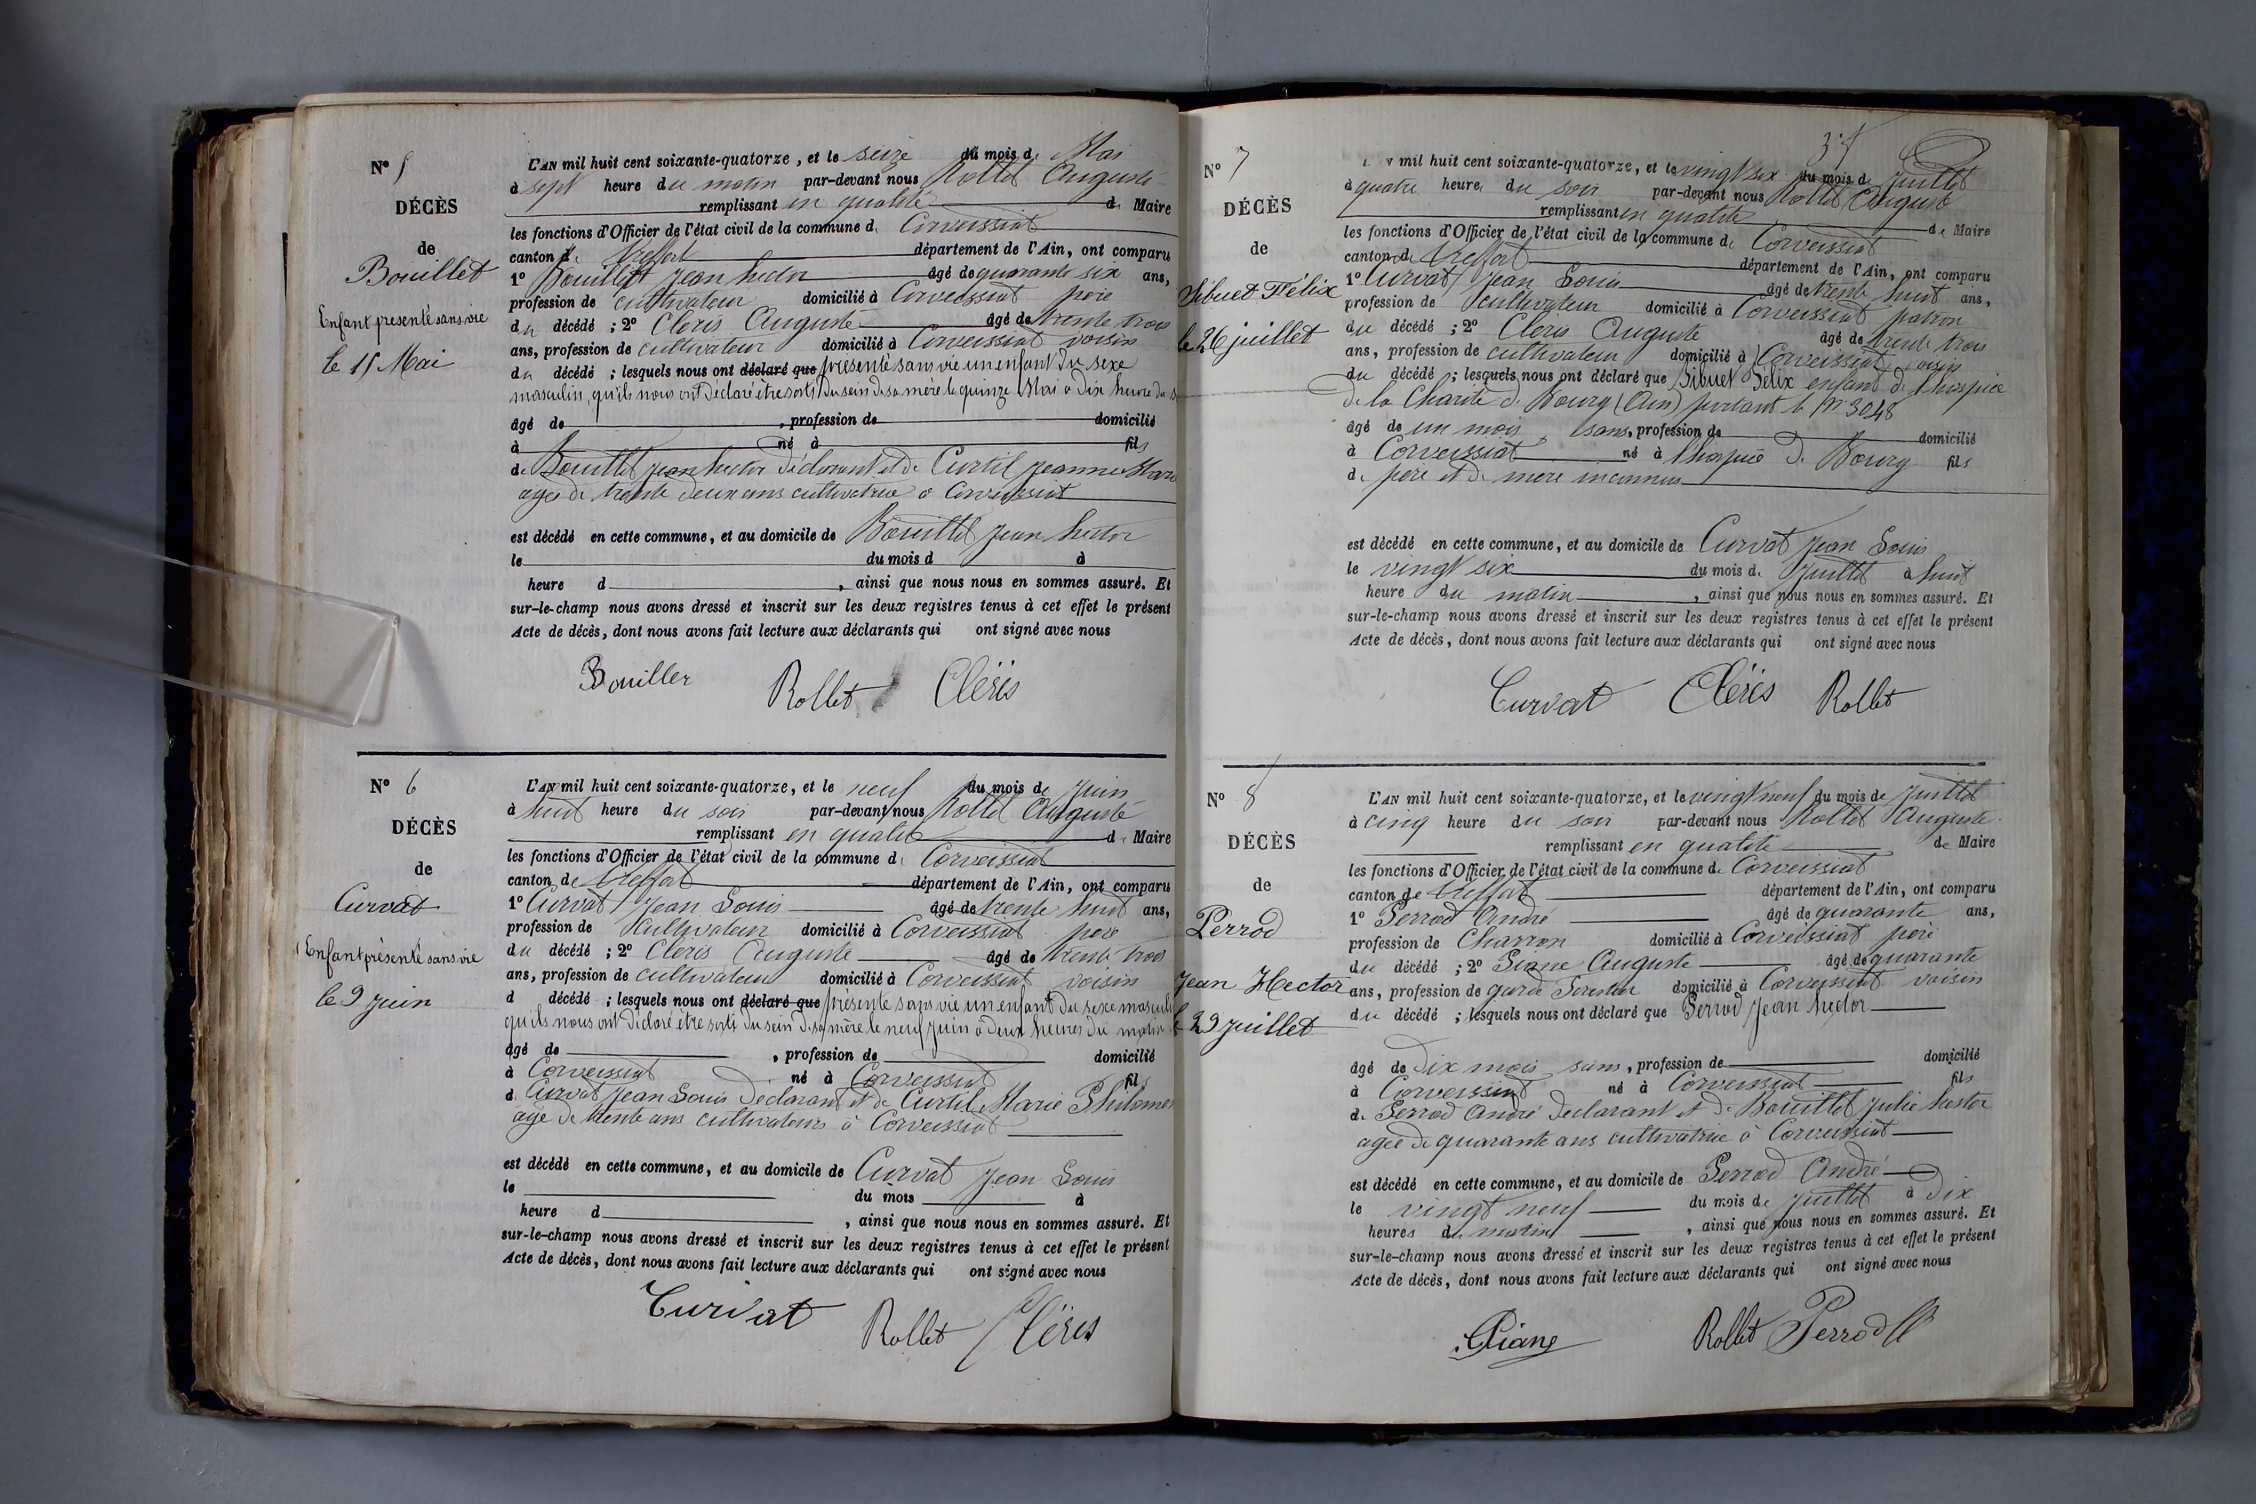 N° 5
DÉCÈS
de
Bouillet
Enfant présenté sans vie
le 15 Mai
L'AN mil huit cent soixante-quatorze, et le seize du mois de Mai
à sept heure du matin par-devant nous Rollet Auguste
remplissant en qualité de Maire
les fonctions d'Officier de l'état civil de la commune de Corveissiat
canton de Treffort département de l'Ain, ont comparu
1° Bouillet Jean hector âgé de quarante six ans,
profession de cultivateur domicilié à Corveissiat père
du décédé ; 2° Cléris Auguste âgé de trente trois
ans, profession de cultivateur domicilié à Corveissiat voisin
du décédé ; lesquels nous ont déclaré que présenté sans vie un enfant du sexe
masculin, qu'ils nous ont déclaré être sorti du sein de sa mère le quinze Mai à dix heure du
âgé de , profession de domicilié
à né à fils
de Bouillet Jean hector déclarant et de Curtil Jeanne Marie
agée de trente deux ans cultivatrice à Corveissiat
est décédé en cette commune, et au domicile de Bouillet Jean hector
le du mois d à
heure d , ainsi que nous nous en sommes assuré. Et
sur-le-champ nous avons dressé et inscrit sur les deux registres tenus à cet effet le présent
Acte de décès, dont nous avons fait lecture aux déclarants qui ont signé avec nous
Bouiller Rollet Cléris
N° 6
DÉCÈS
de
Curvat
Enfant présenté sans vie
le 9 juin
L'AN mil huit cent soixante-quatorze, et le neuf du mois de juin
à huit heure du soir par-devant nous Rollet Auguste
remplissant en qualité de Maire
les fonctions d'Officier de l'état civil de la commune de Corveissiat
canton de Treffort département de l'Ain, ont comparu
1° Curvat Jean Louis âgé de trente huit ans,
profession de Cultivateur domicilié à Corveissiat père
du décédé ; 2° Cléris Auguste âgé de trente trois
ans, profession de cultivateur domicilié à Corveissiat voisin
d décédé ; lesquels nous ont déclaré que présenté sans vie un enfant du sexe masculi
qu'ils nous ont déclaré être sorti du sein de sa mère le neuf juin à deux heures du matin
âgé de , profession de domicilié
à Corveissiat né à Corveissiat fils
d Curvat Jean Louis déclarant et de Curtil Marie Philomen
agée de trente ans cultivateurs à Corveissiat
est décédé en cette commune, et au domicile de Curvat Jean Louis
le du mois à
heure d , ainsi que nous nous en sommes assuré. Et
sur-le-champ nous avons dressé et inscrit sur les deux registres tenus à cet effet le présent
Acte de décès, dont nous avons fait lecture aux déclarants qui ont signé avec nous
Curvat Rollet Cléris
N° 7
DÉCÈS
de
Sibuet Félix
le 26 juillet
mil huit cent soixante-quatorze, et le vingt six du mois de juillet
à quatre heure du soir par-devant nous Rollet Auguste
remplissant en qualité de Maire
les fonctions d'Officier de l'état civil de la commune de Corveissiat
canton de Treffort département de l'Ain, ont comparu
1° Curvat Jean Louis âgé de trente huit ans,
profession de cultivateur domicilié à Corveissiat patron
du décédé ; 2° Cléris Auguste âgé de trente trois
ans, profession de cultivateur domicilié à Corveissiat voisin
du décédé ; lesquels nous ont déclaré que Sibuet Félix enfant de l'hospice
de la Charité de Bourg (Ain) portant le N° 3048
âgé de un mois sans, profession de domicilié
à Corveissiat né à l'hospice de Bourg fils
de père et de mère inconnus
est décédé en cette commune, et au domicile de Curvat Jean Louis
le vingt six du mois de juillet à huit
heure du matin , ainsi que nous nous en sommes assuré. Et
sur-le-champ nous avons dressé et inscrit sur les deux registres tenus à cet effet le présent
Acte de décès, dont nous avons fait lecture aux déclarants qui ont signé avec nous
Curvat Cléris Rollet
N° 8
DÉCÈS
de
Perrod
Jean Hector
le 29 juillet
L'AN mil huit cent soixante-quatorze, et le vingt neuf du mois de juillet
à cinq heure du soir par-devant nous Rollet Auguste
remplissant en qualité de Maire
les fonctions d'Officier de l'état civil de la commune de Corveissiat
canton de Treffort département de l'Ain, ont comparu
1° Perrod André âgé de quarante ans,
profession de Charron domicilié à Corveissiat père
du décédé ; 2° Piane Auguste âgé de quarante
ans, profession de garde forestier domicilié à Corveissiat voisin
du décédé ; lesquels nous ont déclaré que Perrod Jean hector
âgé de dix mois sans, profession de domicilié
à Corveissiat né à Corveissiat fils
de Perrod André déclarant et de Bouillet Julie hector
agée de quarante ans cultivatrice à Corveissiat
est décédé en cette commune, et au domicile de Perrod André
le vingt neuf du mois de juillet à dix
heures du matin , ainsi que nous nous en sommes assuré. Et
sur-le-champ nous avons dressé et inscrit sur les deux registres tenus à cet effet le présent
Acte de décès, dont nous avons fait lecture aux déclarants qui ont signé avec nous
Piane Rollet Perrod